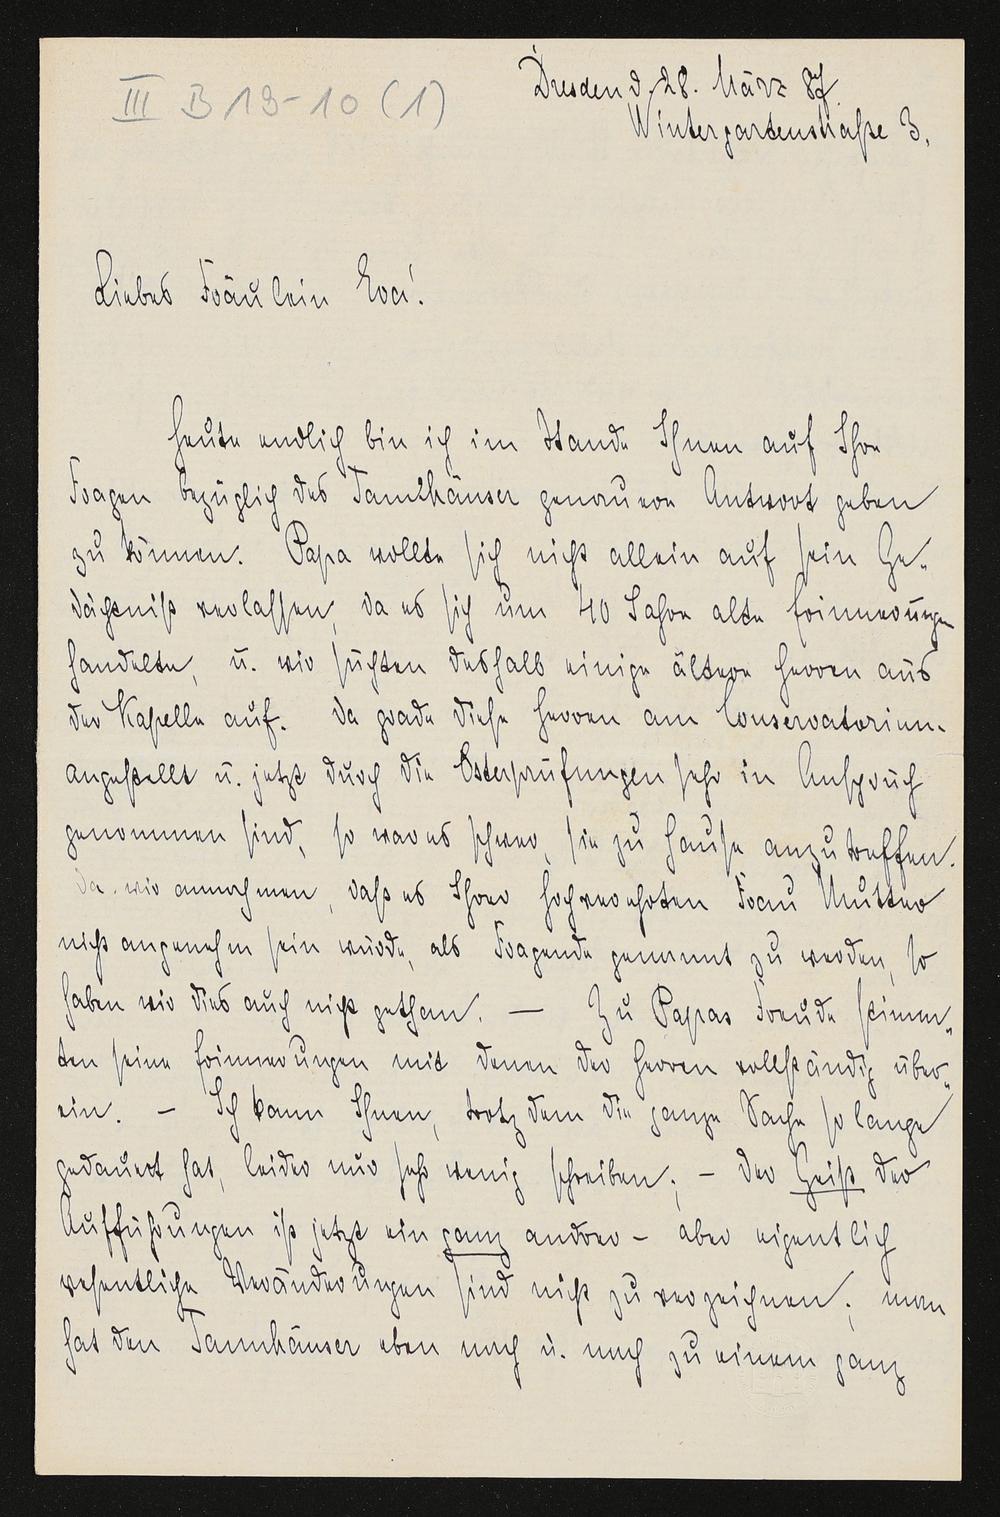 III B 19-10 (1)
Dresden d. 28. März 87.
Wintergartenstraße 3.
Liebes Fräulein Eva!
Heute endlich bin ich im Stande Ihnen auf Ihre
Fragen bezüglich des Tannhäuser genauere Antwort geben
zu können. Papa wollte sich nicht allein auf sein Ge-
dächtniß verlassen, da es sich um 40 Jahre alte Erinnerungen
handelte, u. wir suchten deshalb einige ältere Herren aus
der Kapelle auf. Da grade diese Herren am Conservatorium
angestellt u. jetzt durch die Osterprüfungen sehr in Anspruch
genommen sind, so war es schwer, sie zu Hause anzutreffen.
Da wir annahmen, daß es Ihrer hochverehrten Frau Mutter
nicht angenehm sein würde, als Fragende genannt zu werden, so
haben wir dies auch nicht gethan. — Zu Papas Freude stimm-
ten seine Erinnerungen mit denen der Herren vollständig über-
ein. — Ich kann Ihnen, trotzdem die ganze Sache so lange
gedauert hat, leider nur sehr wenig schreiben; — der Geist der
Aufführungen ist jetzt ein ganz andrer — aber eigentlich
wesentliche Veränderungen sind nicht zu verzeichnen; man
hat den Tannhäuser eben nach u. nach zu einem ganz